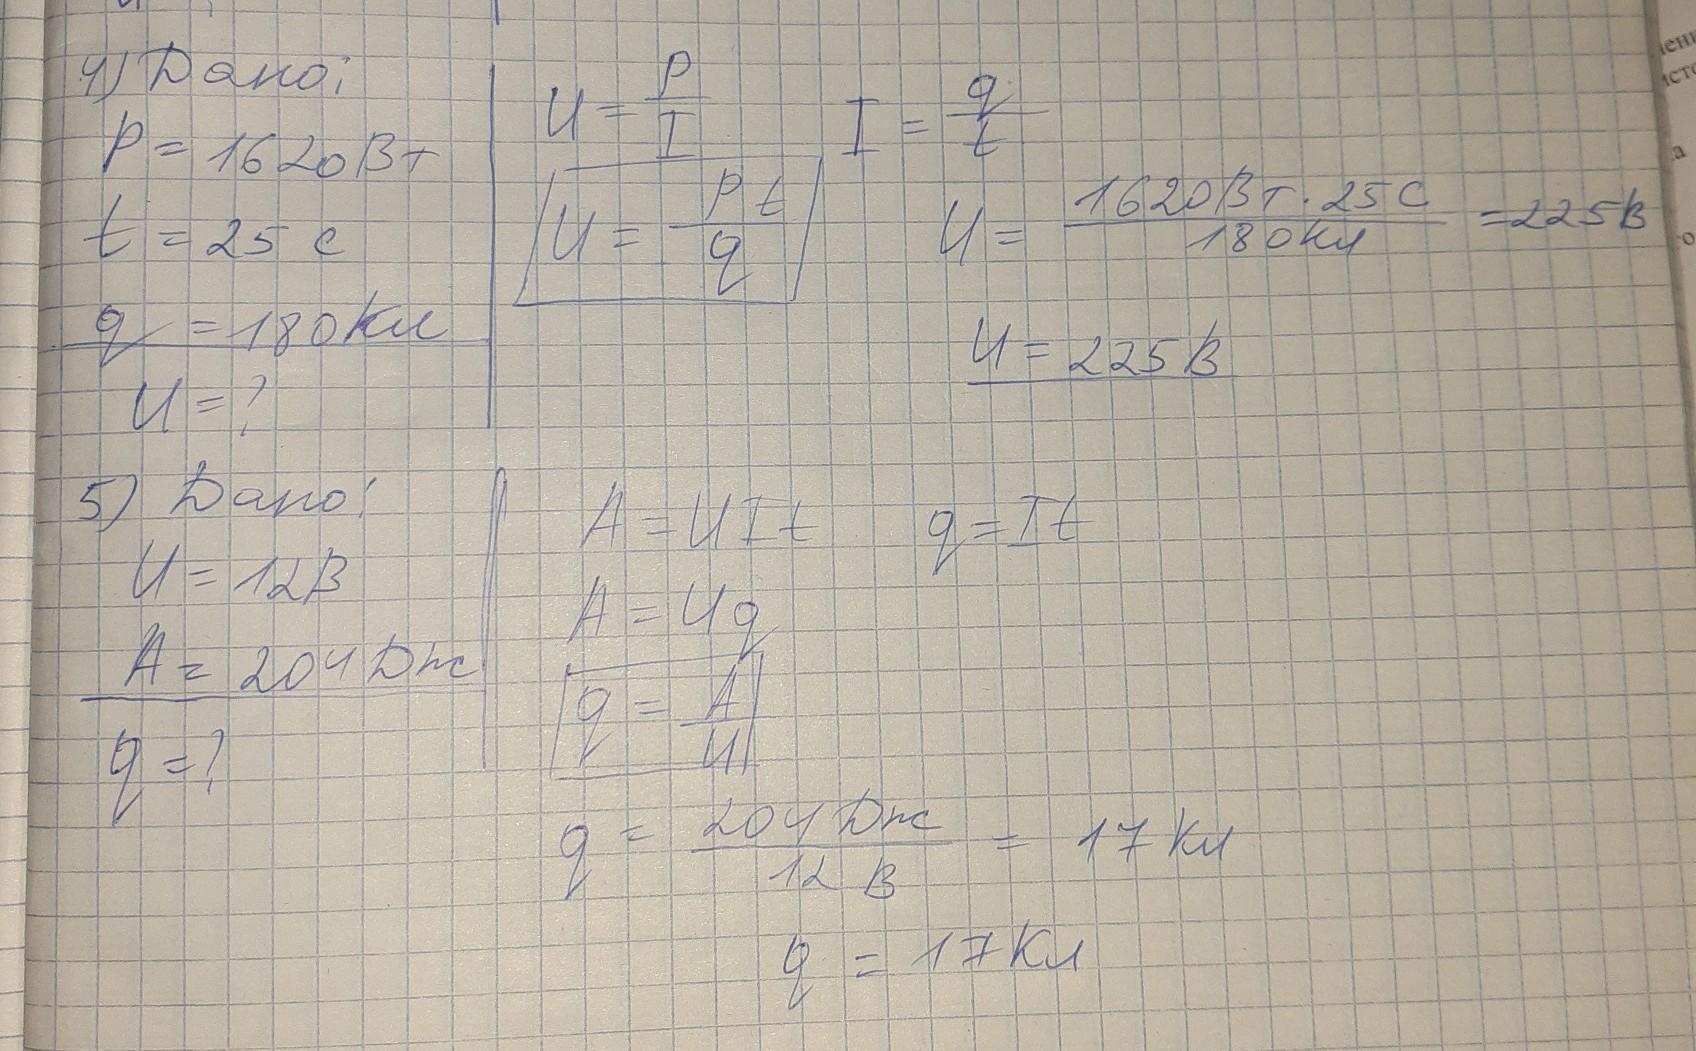 4) Дано:
P = 1620 Вт
t = 25 с
q = 180 Кл
U = ?
U = P/I I = q/t
U = Pt/q
U = 1620 Вт · 25 с / 180 Кл = 225 В
U = 225 В
5) Дано:
U = 12 В
A = 204 Дж
q = ?
A = UIt q = It
A = Uq
q = A/U
q = 204 Дж / 12 В = 17 Кл
q = 17 Кл